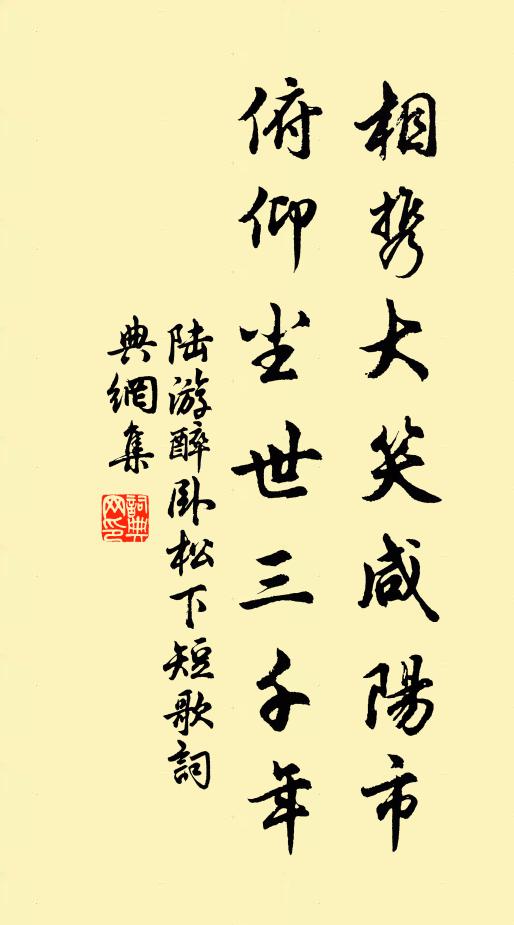 相携大笑咸陽市
俯仰尘世三千年
陆游醉卧松下短歌詞
典網集
詞典
网印